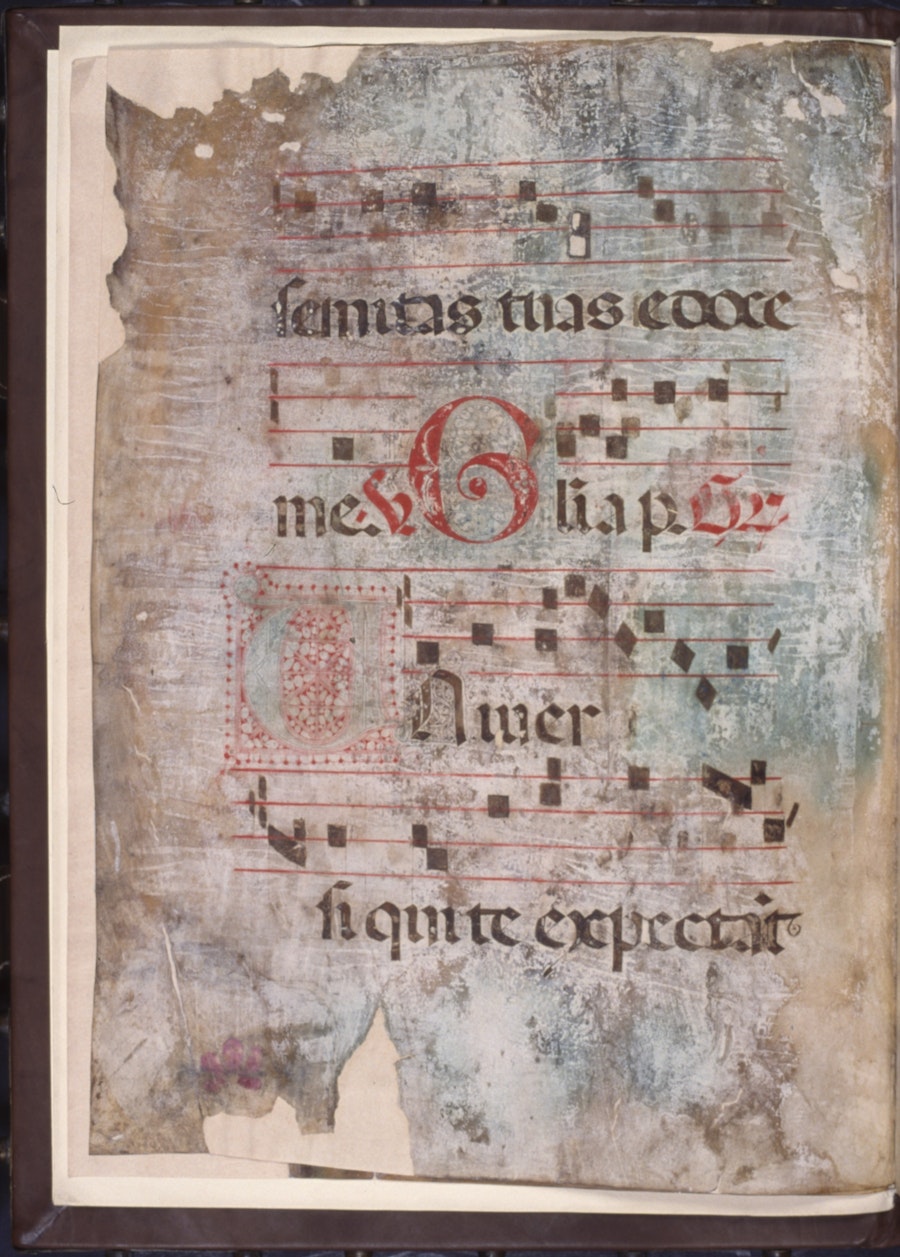 semitas tuas edoce
me. V. Glia p. Gr
UNiuer
si qui te expectāt